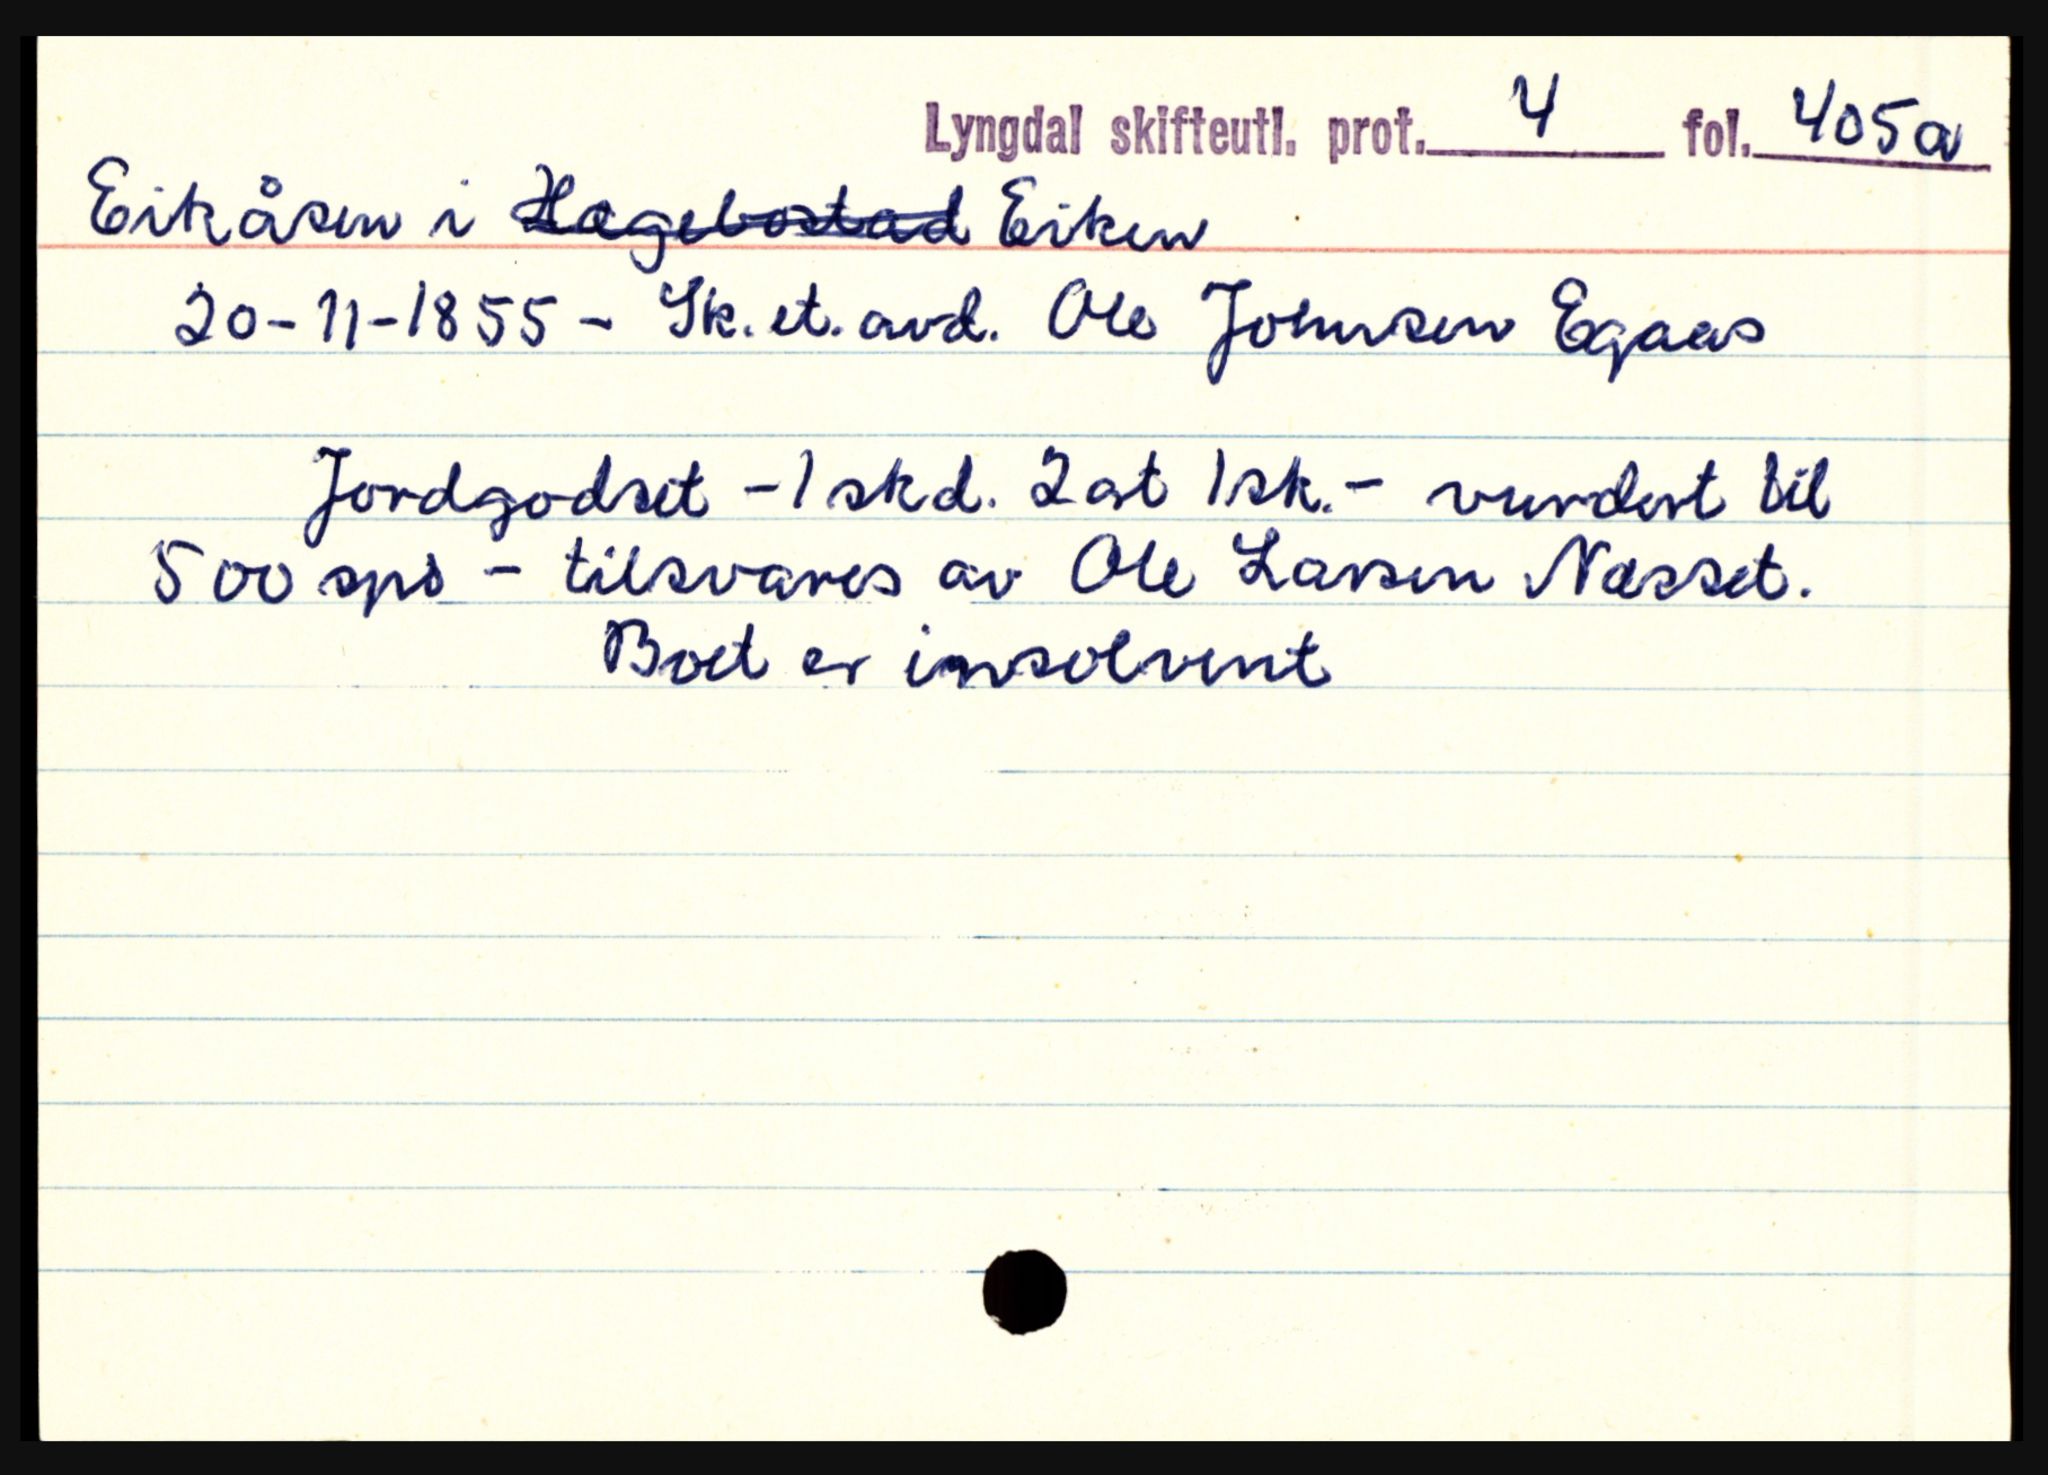 Lyngdal skifteutl. prot. 4 fol. 405a
Eikåsen i Hægebostad Eiken
20-11-1855 - Sk. et. avd. Ole Johnsen Egaas
Jordgodset - 1 skd. 2 ort 1 sk. - vurdert til
500 spd - tilsvares av Ole Larsen Næsset.
Boet er insolvent